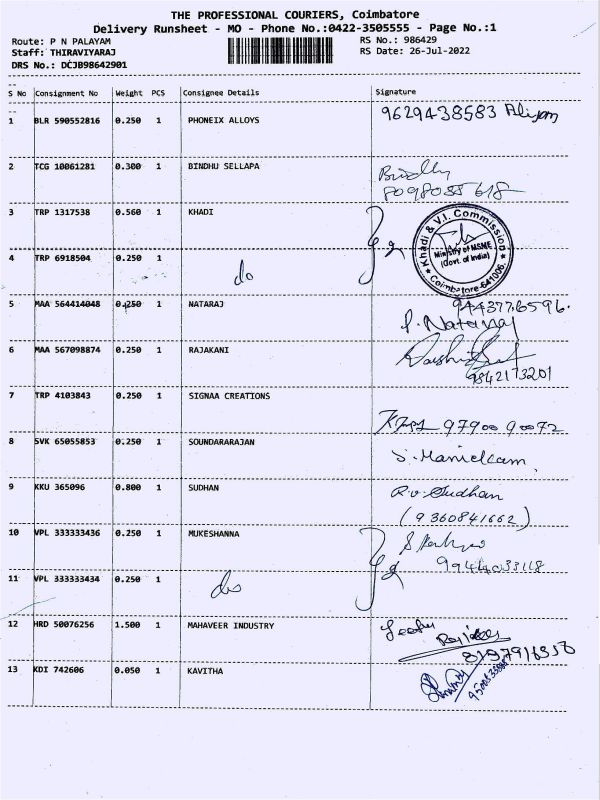 THE PROFESSIONAL COURIERS, Coimbatore
Delivery Runsheet - MO - Phone No.:0422-3505555 - Page No.:1
Route: P N PALAYAM RS No.: 986429
Staff: THIRAVIYARAJ RS Date: 26-Jul-2022
DRS No.: DCJB98642901
S No Consignment No Weight PCS Consignee Details Signature
1 BLR 590552816 0.250 1 PHONEIX ALLOYS 9629438583
2 TCG 10061281 0.300 1 BINDHU SELLAPA
3 TRP 1317538 0.560 1 KHADI
Khadi & V.I. Commission
Ministry of MSME
(Govt. of India)
Coimbatore-641006
4 TRP 6918504 0.250 1 do
5 MAA 564414048 0.250 1 NATARAJ
P. Nataraj
6 MAA 567098874 0.250 1 RAJAKANI
9842173201
7 TRP 4103843 0.250 1 SIGNAA CREATIONS
97900 90072
8 SVK 65055853 0.250 1 SOUNDARARAJAN S. Manickam
9 KKU 365096 0.800 1 SUDHAN R.V. Sudhan
(9360841662)
10 VPL 333333436 0.250 1 MUKESHANNA
11 VPL 333333434 0.250 1 do
12 HRD 50076256 1.500 1 MAHAVEER INDUSTRY
13 KDI 742606 0.050 1 KAVITHA